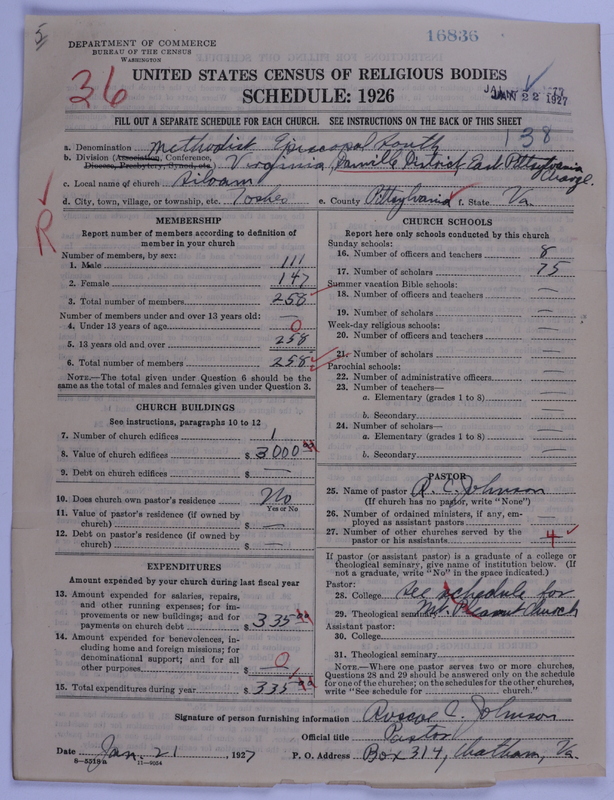 5
16836
DEPARTMENT OF COMMERCE
BUREAU OF THE CENSUS
WASHINGTON
36
UNITED STATES CENSUS OF RELIGIOUS BODIES
SCHEDULE: 1926
JAN 22 1927
FILL OUT A SEPARATE SCHEDULE FOR EACH CHURCH. SEE INSTRUCTIONS ON THE BACK OF THIS SHEET
138
a. Denomination Methodist Episcopal South
b. Division (Association, Conference, Diocese, Presbytery, Synod, etc.) Virginia, Danville District, East Pittsylvania Charge.
c. Local name of church Siloam
d. City, town, village, or township, etc. Toshes e. County Pittsylvania f. State Va.
R
MEMBERSHIP
Report number of members according to definition of
member in your church
Number of members, by sex:
1. Male 111
2. Female 147
3. Total number of members 258
Number of members under and over 13 years old: —
4. Under 13 years of age 0
5. 13 years old and over 258
6. Total number of members 258
NOTE.—The total given under Question 6 should be the
same as the total of males and females given under Question 3.
CHURCH BUILDINGS
See instructions, paragraphs 10 to 12
7. Number of church edifices 1
8. Value of church edifices $ 3,000
9. Debt on church edifices $ —
10. Does church own pastor's residence No
Yes or No
11. Value of pastor's residence (if owned by
church) $ —
12. Debt on pastor's residence (if owned by
church) $ —
EXPENDITURES
Amount expended by your church during last fiscal year
13. Amount expended for salaries, repairs,
and other running expenses; for im-
provements or new buildings; and for
payments on church debt $ 335
14. Amount expended for benevolences, in-
cluding home and foreign missions; for
denominational support; and for all
other purposes $ 0
15. Total expenditures during year $ 335
CHURCH SCHOOLS
Report here only schools conducted by this church
Sunday schools:
16. Number of officers and teachers 8
17. Number of scholars 75
Summer vacation Bible schools:
18. Number of officers and teachers —
19. Number of scholars —
Week-day religious schools:
20. Number of officers and teachers —
21. Number of scholars —
Parochial schools:
22. Number of administrative officers —
23. Number of teachers—
a. Elementary (grades 1 to 8) —
b. Secondary —
24. Number of scholars—
a. Elementary (grades 1 to 8) —
b. Secondary —
PASTOR
25. Name of pastor R. C. Johnson
(If church has no pastor, write "None")
26. Number of ordained ministers, if any, em-
ployed as assistant pastors —
27. Number of other churches served by the
pastor or his assistants 4
If pastor (or assistant pastor) is a graduate of a college or
theological seminary, give name of institution below. (If
not a graduate, write "No" in the space indicated.)
Pastor:
28. College See schedule for
29. Theological seminary Mt. Pleasant Church
Assistant pastor:
30. College
31. Theological seminary
NOTE.—Where one pastor serves two or more churches,
Questions 28 and 29 should be answered only on the schedule
for one of the churches; on the schedules for the other churches,
write "See schedule for ____ church."
Signature of person furnishing information Roscoe C. Johnson
Official title Pastor
Date Jan. 21, 1927 P. O. Address Box 314, Chatham, Va.
8—5518a 11—9054